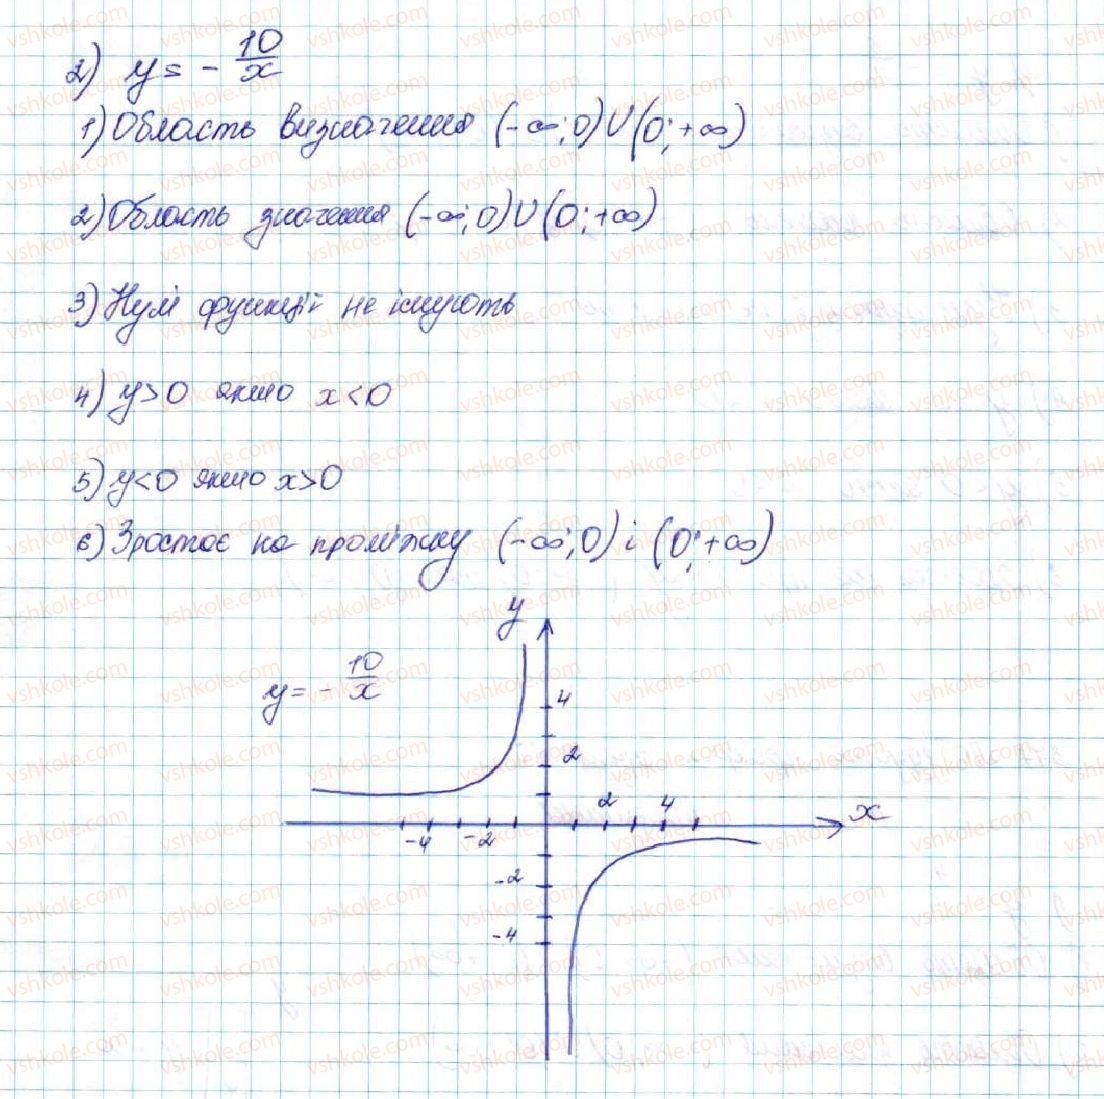 2) y = - 10/x
1) Область визначення (-∞; 0) U (0; +∞)
2) Область значення (-∞; 0) U (0; +∞)
3) Нулі функції не існують
4) y>0 якщо x<0
5) y<0 якщо x>0
6) Зростає на проміжку (-∞; 0) і (0; +∞)
y
y = - 10/x
4
2
2 4 x
-4 -2
-2
-4
vshkole.com